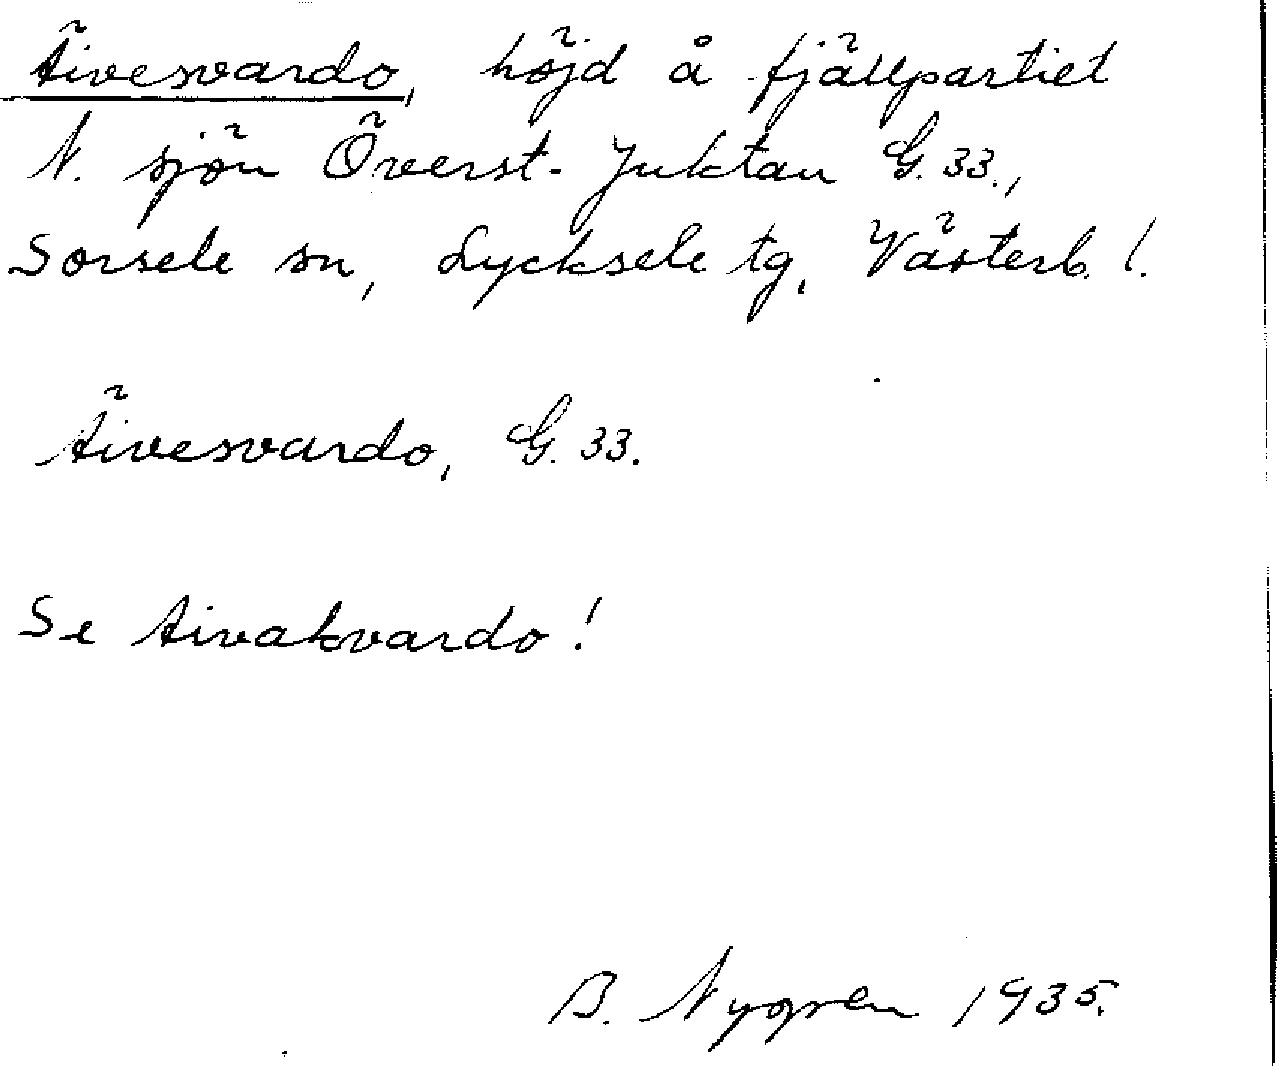 Äivesvardo, höjd å fjällpartiet
N. sjön Överst-Juktan G. 33.,
Sorsele sn, Lycksele tg, Västerb. l.
Äivesvardo, G. 33.
Se Aivakvardo!
B. Nygren 1935.